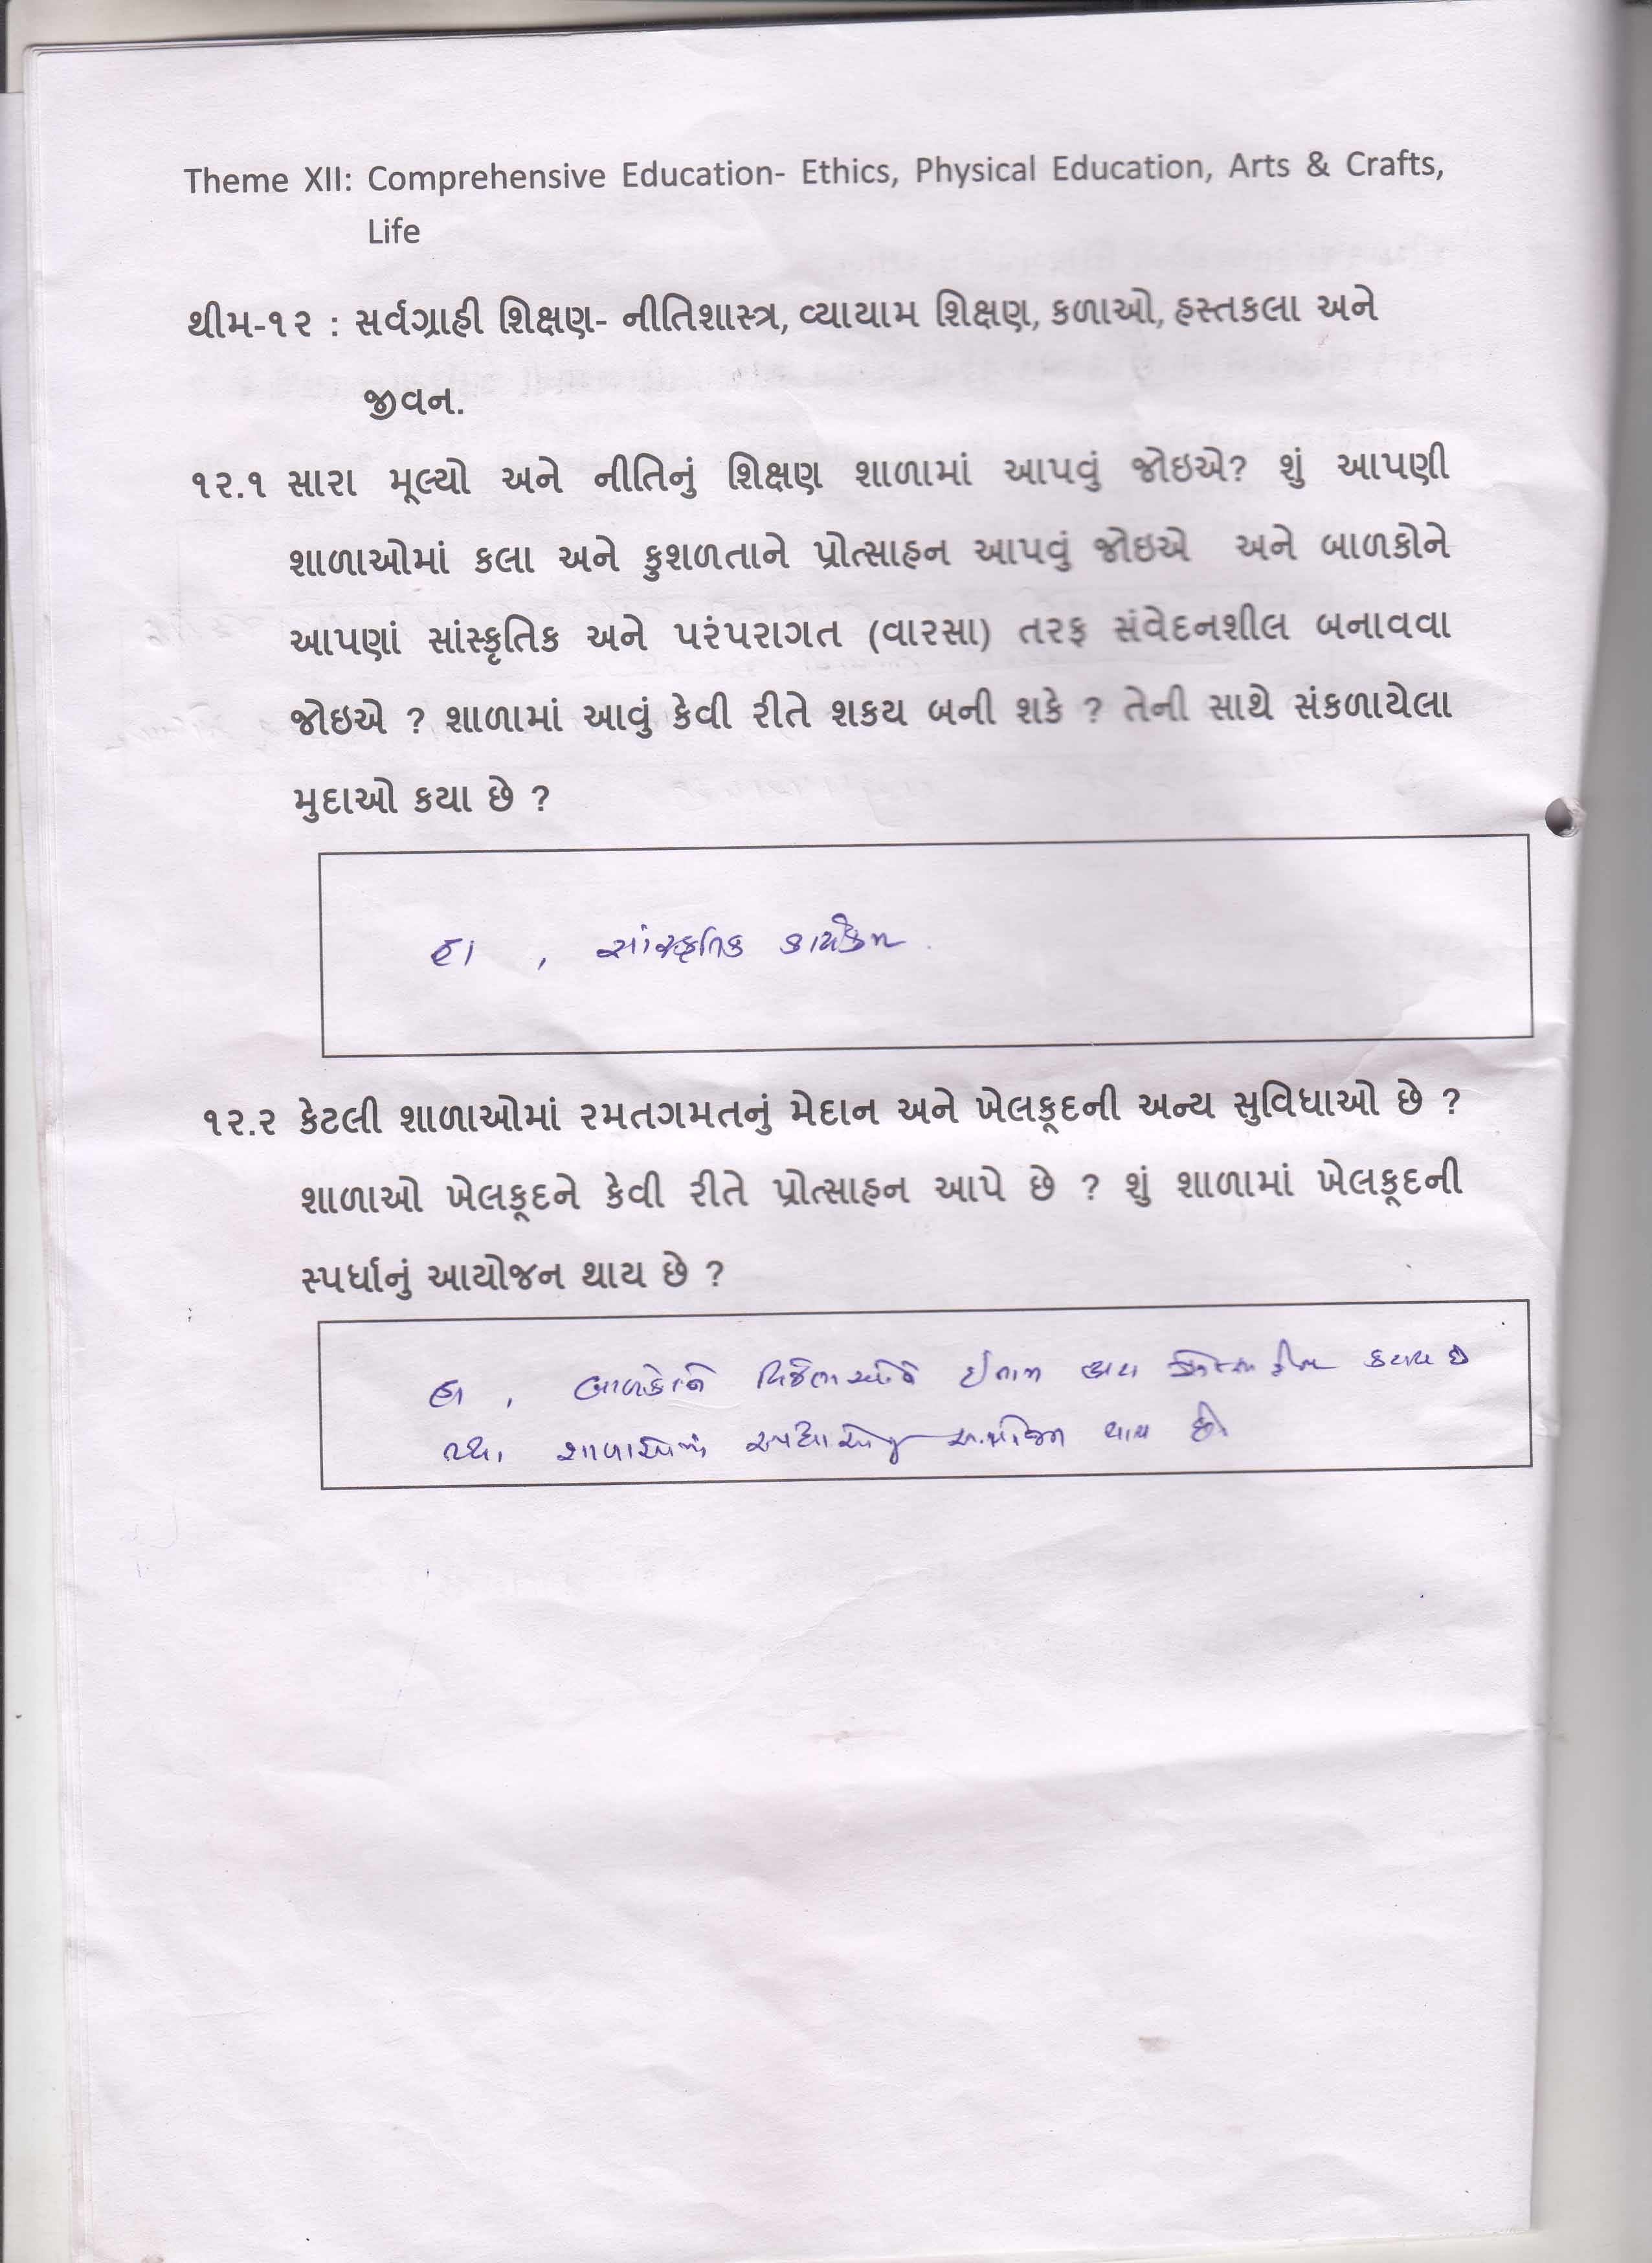 Theme XII: Comprehensive Education- Ethics, Physical Education, Arts & Crafts,
Life
થીમ-૧૨ : સર્વગ્રાહી શિક્ષણ- નીતિશાસ્ત્ર, વ્યાયામ શિક્ષણ, કળાઓ, હસ્તકલા અને
જીવન.
૧૨.૧ સારા મૂલ્યો અને નીતિનું શિક્ષણ શાળામાં આપવું જોઇએ? શું આપણી
શાળાઓમાં કલા અને કુશળતાને પ્રોત્સાહન આપવું જોઇએ અને બાળકોને
આપણાં સાંસ્કૃતિક અને પરંપરાગત (વારસા) તરફ સંવેદનશીલ બનાવવા
જોઇએ ? શાળામાં આવું કેવી રીતે શકય બની શકે ? તેની સાથે સંકળાયેલા
મુદાઓ કયા છે ?
હા , સાંસ્કૃતિક કાર્યક્રમ .
૧૨.૨ કેટલી શાળાઓમાં રમતગમતનું મેદાન અને ખેલકૂદની અન્ય સુવિધાઓ છે ?
શાળાઓ ખેલકૂદને કેવી રીતે પ્રોત્સાહન આપે છે ? શું શાળામાં ખેલકૂદની
સ્પર્ધાનું આયોજન થાય છે ?
હા , બાળકોને વિજેતાઓને ઈનામ કરાય છે
તથા શાળાઓમાં સ્પર્ધાઓનું આયોજન થાય છે